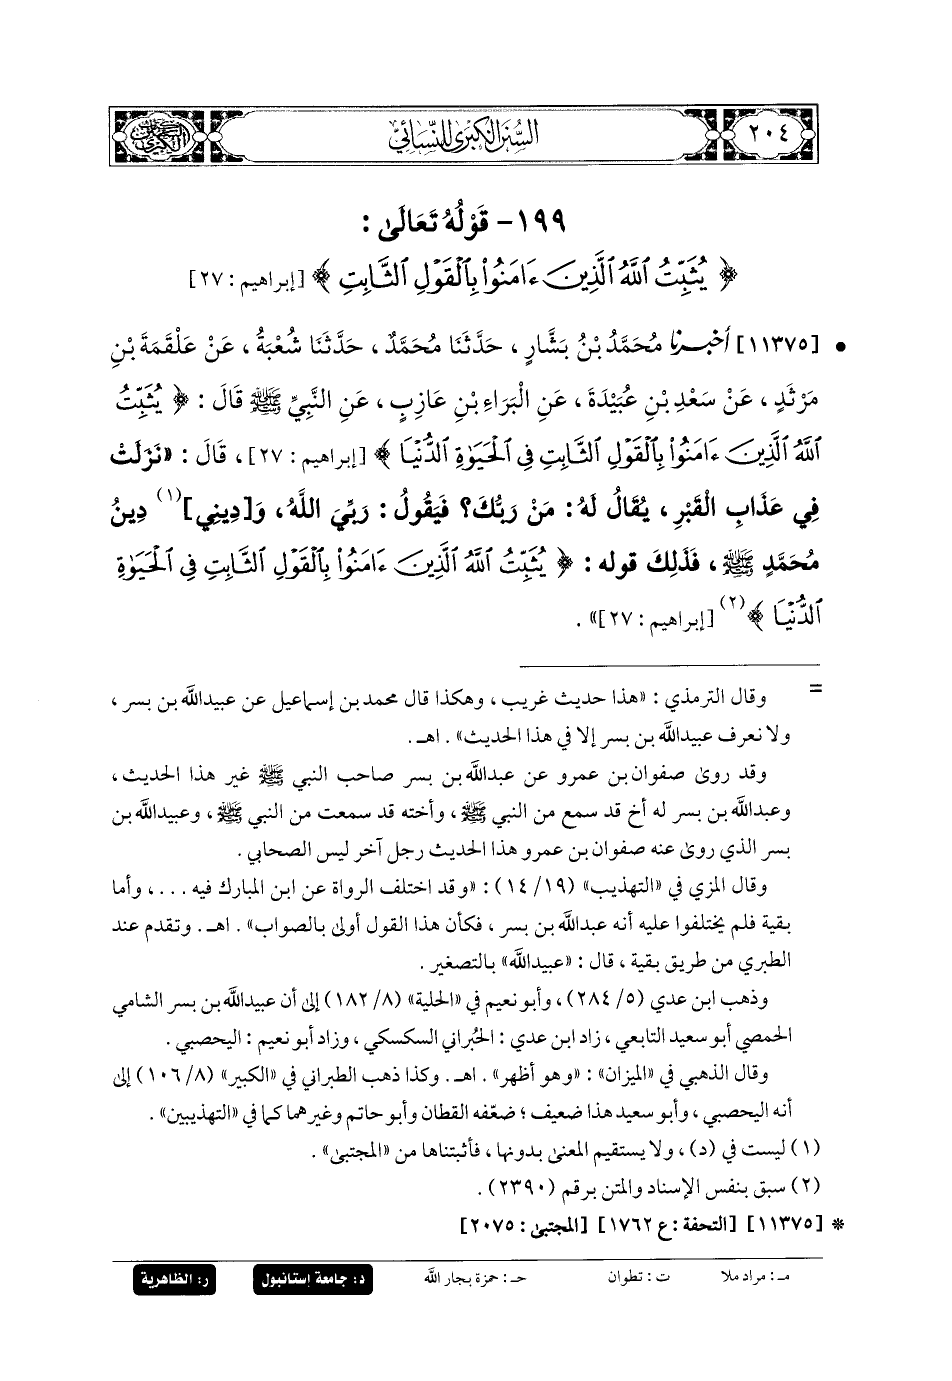 ٢٠٤
السنن الكبرى للنسائي
١٩٩- قَوْلُهُ تَعَالَىٰ :
﴿ يُثَبِّتُ ٱللَّهُ ٱلَّذِينَ ءَامَنُواْ بِٱلْقَوْلِ ٱلثَّابِتِ ﴾ [إبراهيم : ٢٧]
• [١١٣٧٥] أخبرنا مُحَمَّدُ بْنُ بَشَّارٍ ، حَدَّثَنَا مُحَمَّدٌ ، حَدَّثَنَا شُعْبَةُ ، عَنْ عَلْقَمَةَ بْنِ
مَرْثَدٍ ، عَنْ سَعْدِ بْنِ عُبَيْدَةَ ، عَنِ الْبَرَاءِ بْنِ عَازِبٍ ، عَنِ النَّبِيِّ ﷺ قَالَ : ﴿ يُثَبِّتُ
ٱللَّهُ ٱلَّذِينَ ءَامَنُواْ بِٱلْقَوْلِ ٱلثَّابِتِ فِى ٱلْحَيَوٰةِ ٱلدُّنْيَا ﴾ [إبراهيم : ٢٧] ، قَالَ : «نَزَلَتْ
فِي عَذَابِ الْقَبْرِ ، يُقَالُ لَهُ : مَنْ رَبُّكَ؟ فَيَقُولُ : رَبِّيَ اللَّهُ ، وَ[دِينِي](١) دِينُ
مُحَمَّدٍ ﷺ ، فَذَلِكَ قوله : ﴿ يُثَبِّتُ ٱللَّهُ ٱلَّذِينَ ءَامَنُواْ بِٱلْقَوْلِ ٱلثَّابِتِ فِى ٱلْحَيَوٰةِ
ٱلدُّنْيَا ﴾(٢) [إبراهيم : ٢٧]» .
= وقال الترمذي : «هذا حديث غريب ، وهكذا قال محمد بن إسماعيل عن عبيدالله بن بسر ،
ولا نعرف عبيدالله بن بسر إلا في هذا الحديث» . اهـ .
وقد روىٰ صفوان بن عمرو عن عبدالله بن بسر صاحب النبي ﷺ غير هذا الحديث ،
وعبدالله بن بسر له أخ قد سمع من النبي ﷺ ، وأخته قد سمعت من النبي ﷺ ، وعبيدالله بن
بسر الذي روىٰ عنه صفوان بن عمرو هذا الحديث رجل آخر ليس الصحابي .
وقال المزي في «التهذيب» (١٩/ ١٤) : «وقد اختلف الرواة عن ابن المبارك فيه . . . ، وأما
بقية فلم يختلفوا عليه أنه عبدالله بن بسر ، فكأن هذا القول أولىٰ بالصواب» . اهـ . وتقدم عند
الطبري من طريق بقية ، قال : «عبيدالله» بالتصغير .
وذهب ابن عدي (٥/ ٢٨٤) ، وأبو نعيم في «الحلية» (٨/ ١٨٢) إلىٰ أن عبيدالله بن بسر الشامي
الحمصي أبو سعيد التابعي ، زاد ابن عدي : الحُبراني السكسكي ، وزاد أبو نعيم : اليحصبي .
وقال الذهبي في «الميزان» : «وهو أظهر» . اهـ . وكذا ذهب الطبراني في «الكبير» (٨/ ١٠٦) إلىٰ
أنه اليحصبي ، وأبو سعيد هذا ضعيف ؛ ضعّفه القطان وأبو حاتم وغيرهما كما في «التهذيبين» .
(١) ليست في (د) ، ولا يستقيم المعنىٰ بدونها ، فأثبتناها من «المجتبىٰ» .
(٢) سبق بنفس الإسناد والمتن برقم (٢٣٩٠) .
* [١١٣٧٥] [التحفة : ع ١٧٦٢] [المجتبىٰ : ٢٠٧٥]
مـ : مراد ملا ت : تطوان حـ : حمزة بجار الله د : جامعة إستانبول ر : الظاهرية